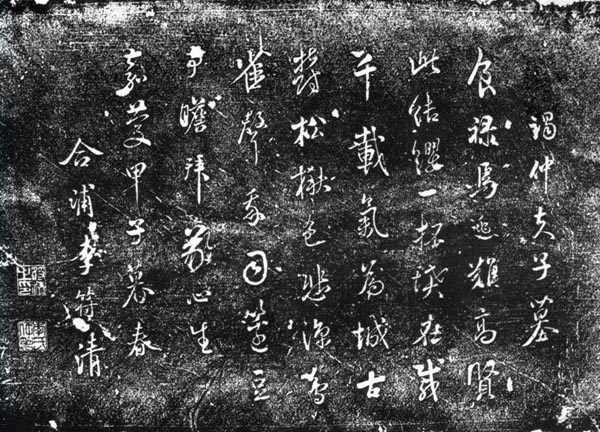 謁仲夫子墓
食禄焉逃難高賢
此結纓一抔墳在戚
千載氣為城古
松楸色悲涼鳥
雀聲我司籩豆
事瞻拜敬心生
嘉慶甲子暮春
合浦李符清